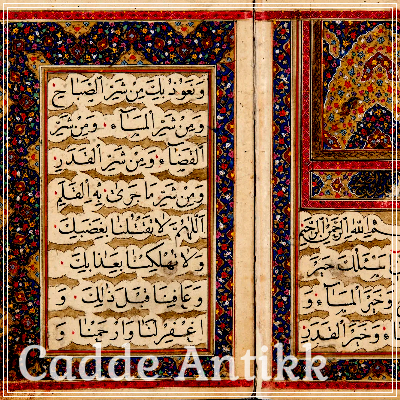 الله الرحمن الرحيم
نسئلك خير
وخير المساء و
وخير القدر
ونعوذ بك من شر الصباح
ومن شر المساء ومن شر
القضاء ومن شر القدر
ومن شر ما جرى به القلم
اللهم لا تقتلنا بغضبك
ولا تهلكنا بعذابك
وعافنا قبل ذلك و
اغفر لنا وارحمنا و
Cadde Antikk